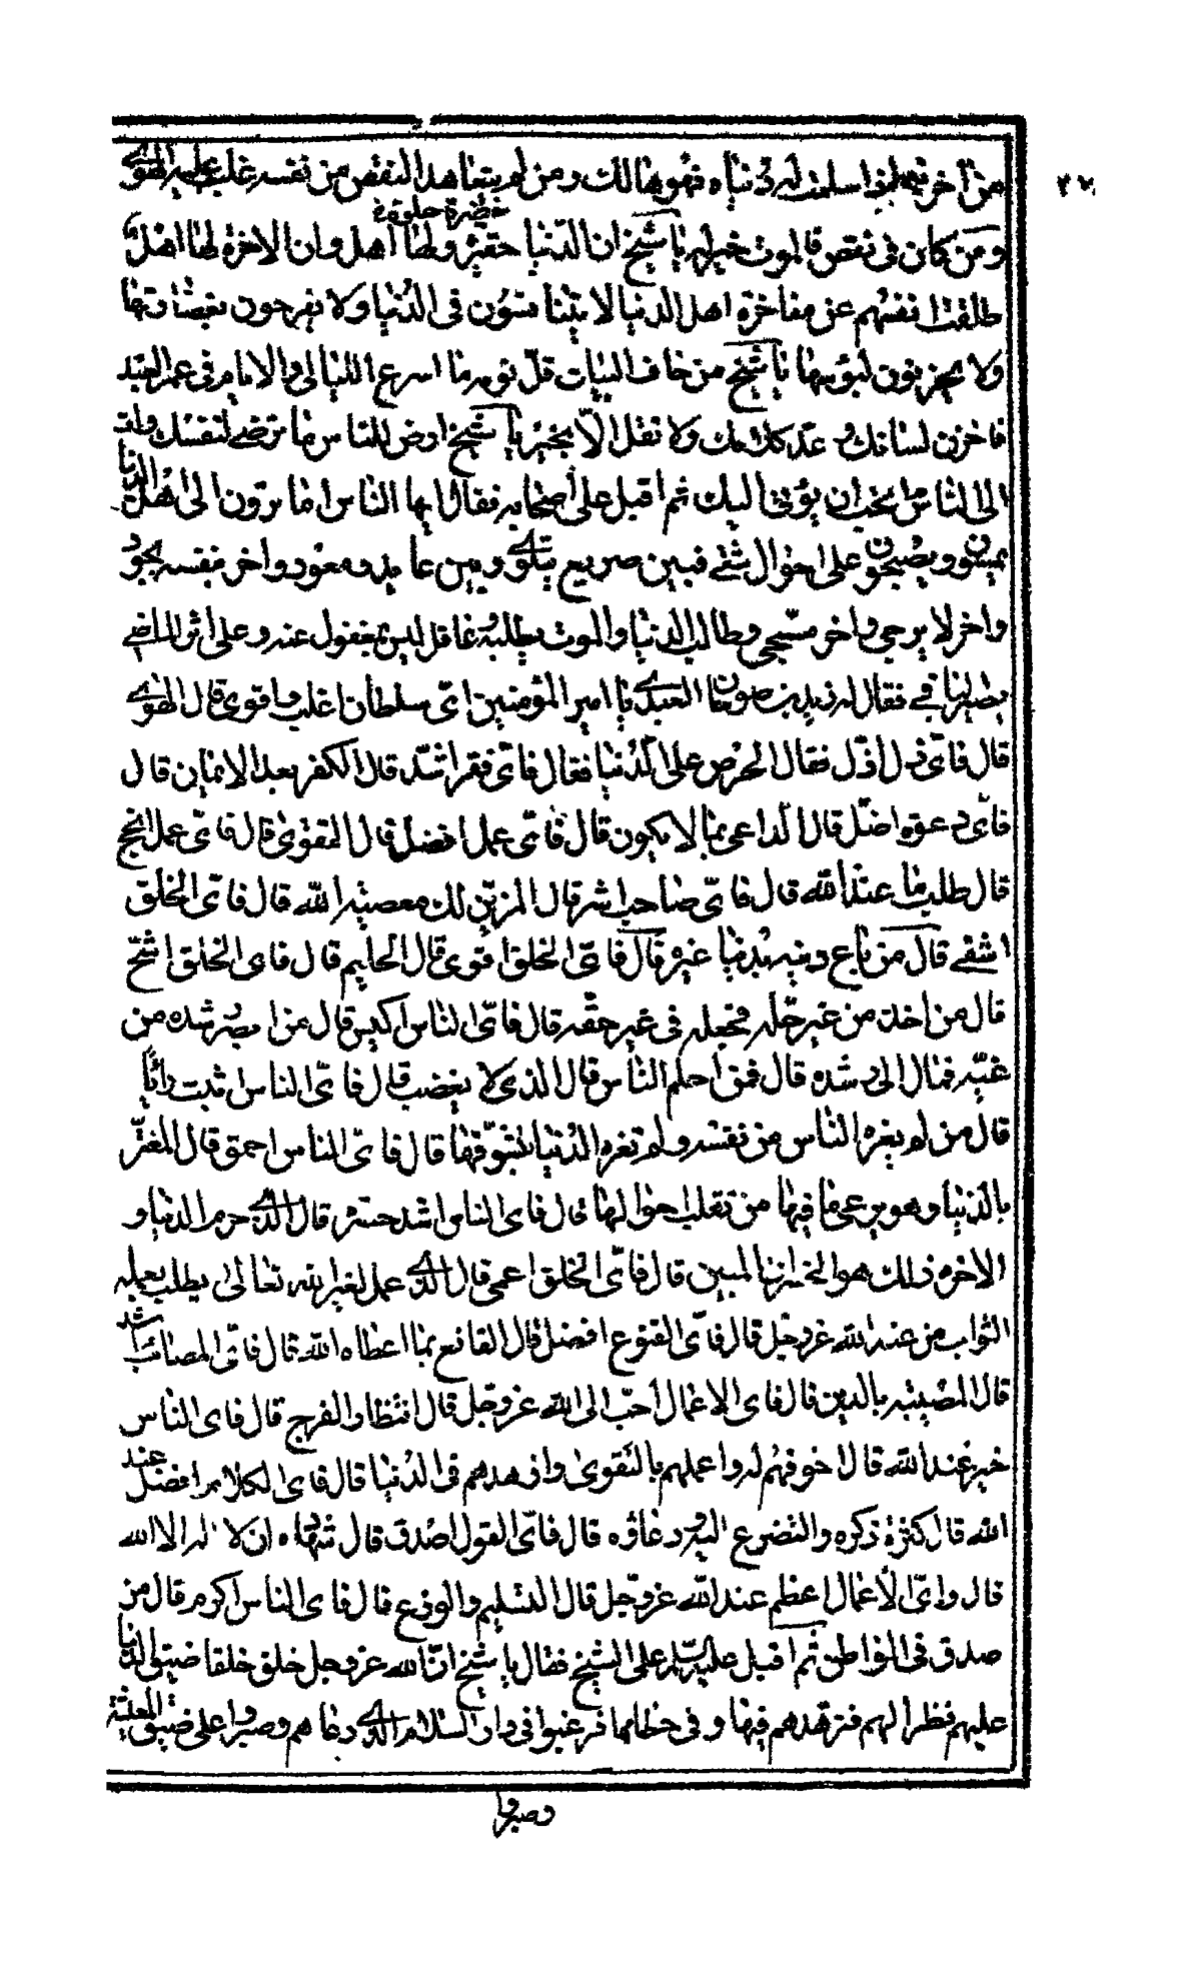 من آخرته اذا سلمت له دنياه فهو هالك ومن لم يتعاهد النقص من نفسه غلب عليه الهوى
خضرة حلوة
ومن كان فى نقص فالموت خير له يا شيخ ان الدنيا حقيرة ولها اهل وان الاخرة لها اهل
طلقت انفسهم عن مفاخرة اهل الدنيا لا يتنافسون فى الدنيا ولا يفرحون بغضارتها
ولا يحزنون لبؤسها يا شيخ من خاف البيات قلّ نومه ما اسرع الليالى والايام فى عمر العبد
فاخزن لسانك وعد كلامك ولا تقل الّا بخير يا شيخ ارض للناس ما ترضى لنفسك وات
الى الناس ما تحب ان يؤتى اليك ثم اقبل على أصحابه فقال ايها الناس اما ترون الى اهل الدنيا
يمسون ويصبحون على احوال شتى فبين صريع يتلوى وبين عايد ومعود واخر بنفسه يجود
واخر لا يرجى واخر مسجى وطالب الدنيا والموت يطلبه وغافل ليس بمغفول عنه وعلى اثر الماضى
يصير الباقى فقال له زيد بن صوحان العبدى يا امير المؤمنين اىّ سلطان اغلب واقوى قال الهوى
قال فاىّ ذل اذلّ فقال الحرص على الدنيا فقال فاىّ فقر اشدّ قال الكفر بعد الايمان قال
فاىّ دعوة اضلّ قال الداعى بما لا يكون قال فاىّ عمل افضل قال التقوى قال فاىّ عمل انجح
قال طلب ما عند الله قال فاىّ صاحب اشر قال المزيّن لك معصية الله قال فاىّ الخلق
اشقى قال من باع دينه بدنيا غيره قال فاىّ الخلق اقوى قال الحليم قال فاى الخلق اشحّ
قال من اخذ من غير حلّه فجعله فى غير حقّه قال فاىّ الناس اكيس قال من ابصر رشده من
غيّه فمال الى رشده قال فمن أحلم الناس قال الذى لا يغضب قال فاىّ الناس اثبت رأيا
قال من لم يغره الناس من نفسه ولم تغره الدنيا بتشوّفها قال فاىّ الناس احمق قال المغترّ
بالدنيا وهو يرى ما فيها من تقلب احوالها قال فاى الناس اشد حسرة قال الذى حرم الدنيا و
الاخرة ذلك هو الخسران المبين قال فاىّ الخلق اعمى قال الذى عمل لغير الله تعالى يطلب بعمله
الثواب من عند الله عز وجل قال فاىّ القنوع افضل قال القانع بما اعطاه الله قال فاىّ المصائب اشد
قال المصيبة بالدين قال فاى الاعمال أحبّ الى الله عز وجل قال انتظار الفرج قال فاى الناس
خير عند الله قال اخوفهم له واعملهم بالتقوى وازهدهم فى الدنيا قال فاى الكلام افضل عند
الله قال كثرة ذكره والتضرع اليه ودعاؤه قال فاىّ القول اصدق قال شهادة ان لا اله الا الله
قال واىّ الأعمال اعظم عند الله عز وجل قال التسليم والورع قال فاى الناس اكرم قال من
صدق فى المواطن ثم اقبل عليه السلام على الشيخ فقال يا شيخ انّ الله عز وجل خلق خلقا ضيق الدنيا
عليهم نظرا لهم فزهدهم فيها وفى حطامها فرغبوا فى دار السلام الذى دعاهم وصبروا على ضيق المعيشة
وصبروا